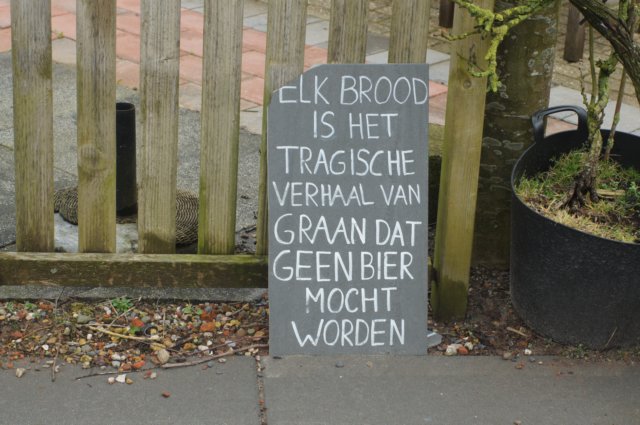 ELK BROOD
IS HET
TRAGISCHE
VERHAAL VAN
GRAAN DAT
GEEN BIER
MOCHT
WORDEN